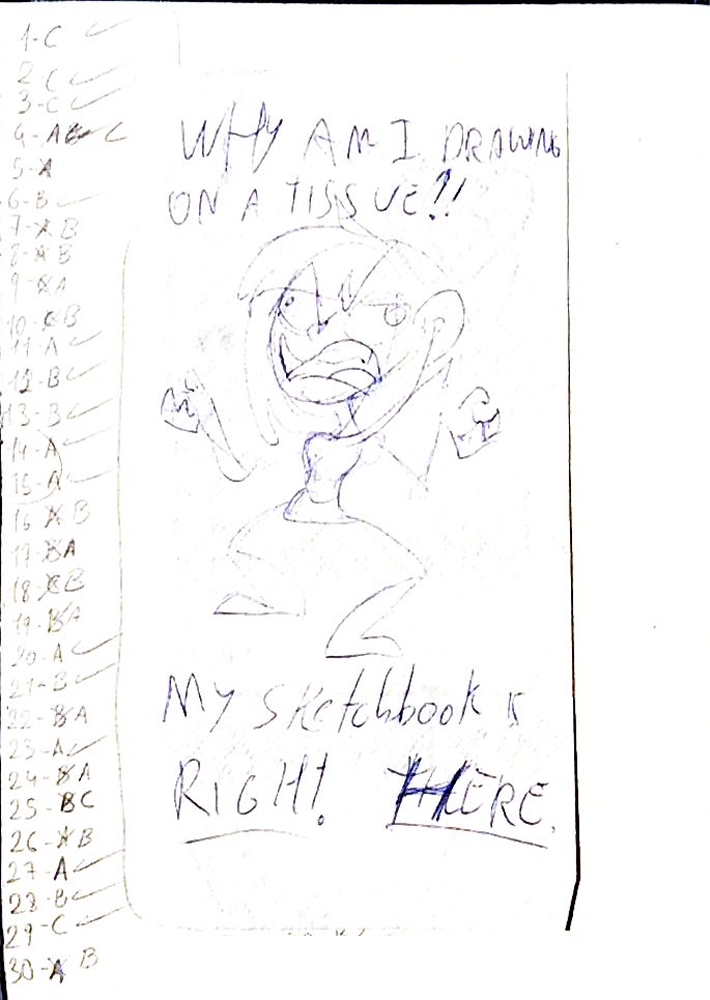 1-C
2-C
3-C
4-A C
5-A
6-B
7-A B
8-A B
9-A
10-C B
11 A
12-B
13-B
14-A
15-A
16 A B
17-B A
18-C B
19-B A
20-A
21-B
22-B A
23-A
24-B A
25-B C
26-A B
27-A
28-B
29-C
30-A B
WHY AM I DRAWING
ON A TISSUE?!!
My sketchbook is
RIGHT! THERE.